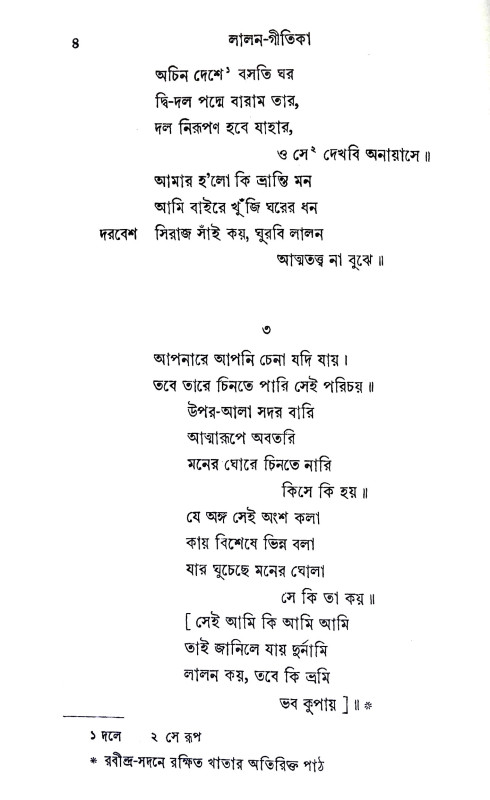 ৪ লালন-গীতিকা
অচিন দেশে১ বসতি ঘর
দ্বি-দল পদ্মে বারাম তার,
দল নিরূপণ হবে যাহার,
ও সে২ দেখবি অনায়াসে॥
আমার হ'লো কি ভ্রান্তি মন
আমি বাইরে খুঁজি ঘরের ধন
দরবেশ সিরাজ সাঁই কয়, ঘুরবি লালন
আত্মতত্ত্ব না বুঝে॥
৩
আপনারে আপনি চেনা যদি যায়।
তবে তারে চিনতে পারি সেই পরিচয়॥
উপর-আলা সদর বারি
আত্মারূপে অবতরি
মনের ঘোরে চিনতে নারি
কিসে কি হয়॥
যে অঙ্গ সেই অংশ কলা
কায় বিশেষে ভিন্ন বলা
যার ঘুচেছে মনের ঘোলা
সে কি তা কয়॥
[ সেই আমি কি আমি আমি
তাই জানিলে যায় দুর্নামি
লালন কয়, তবে কি ভ্রমি
ভব কুপায় ]॥ *
১ দলে ২ সে রূপ
* রবীন্দ্র-সদনে রক্ষিত খাতার অতিরিক্ত পাঠ